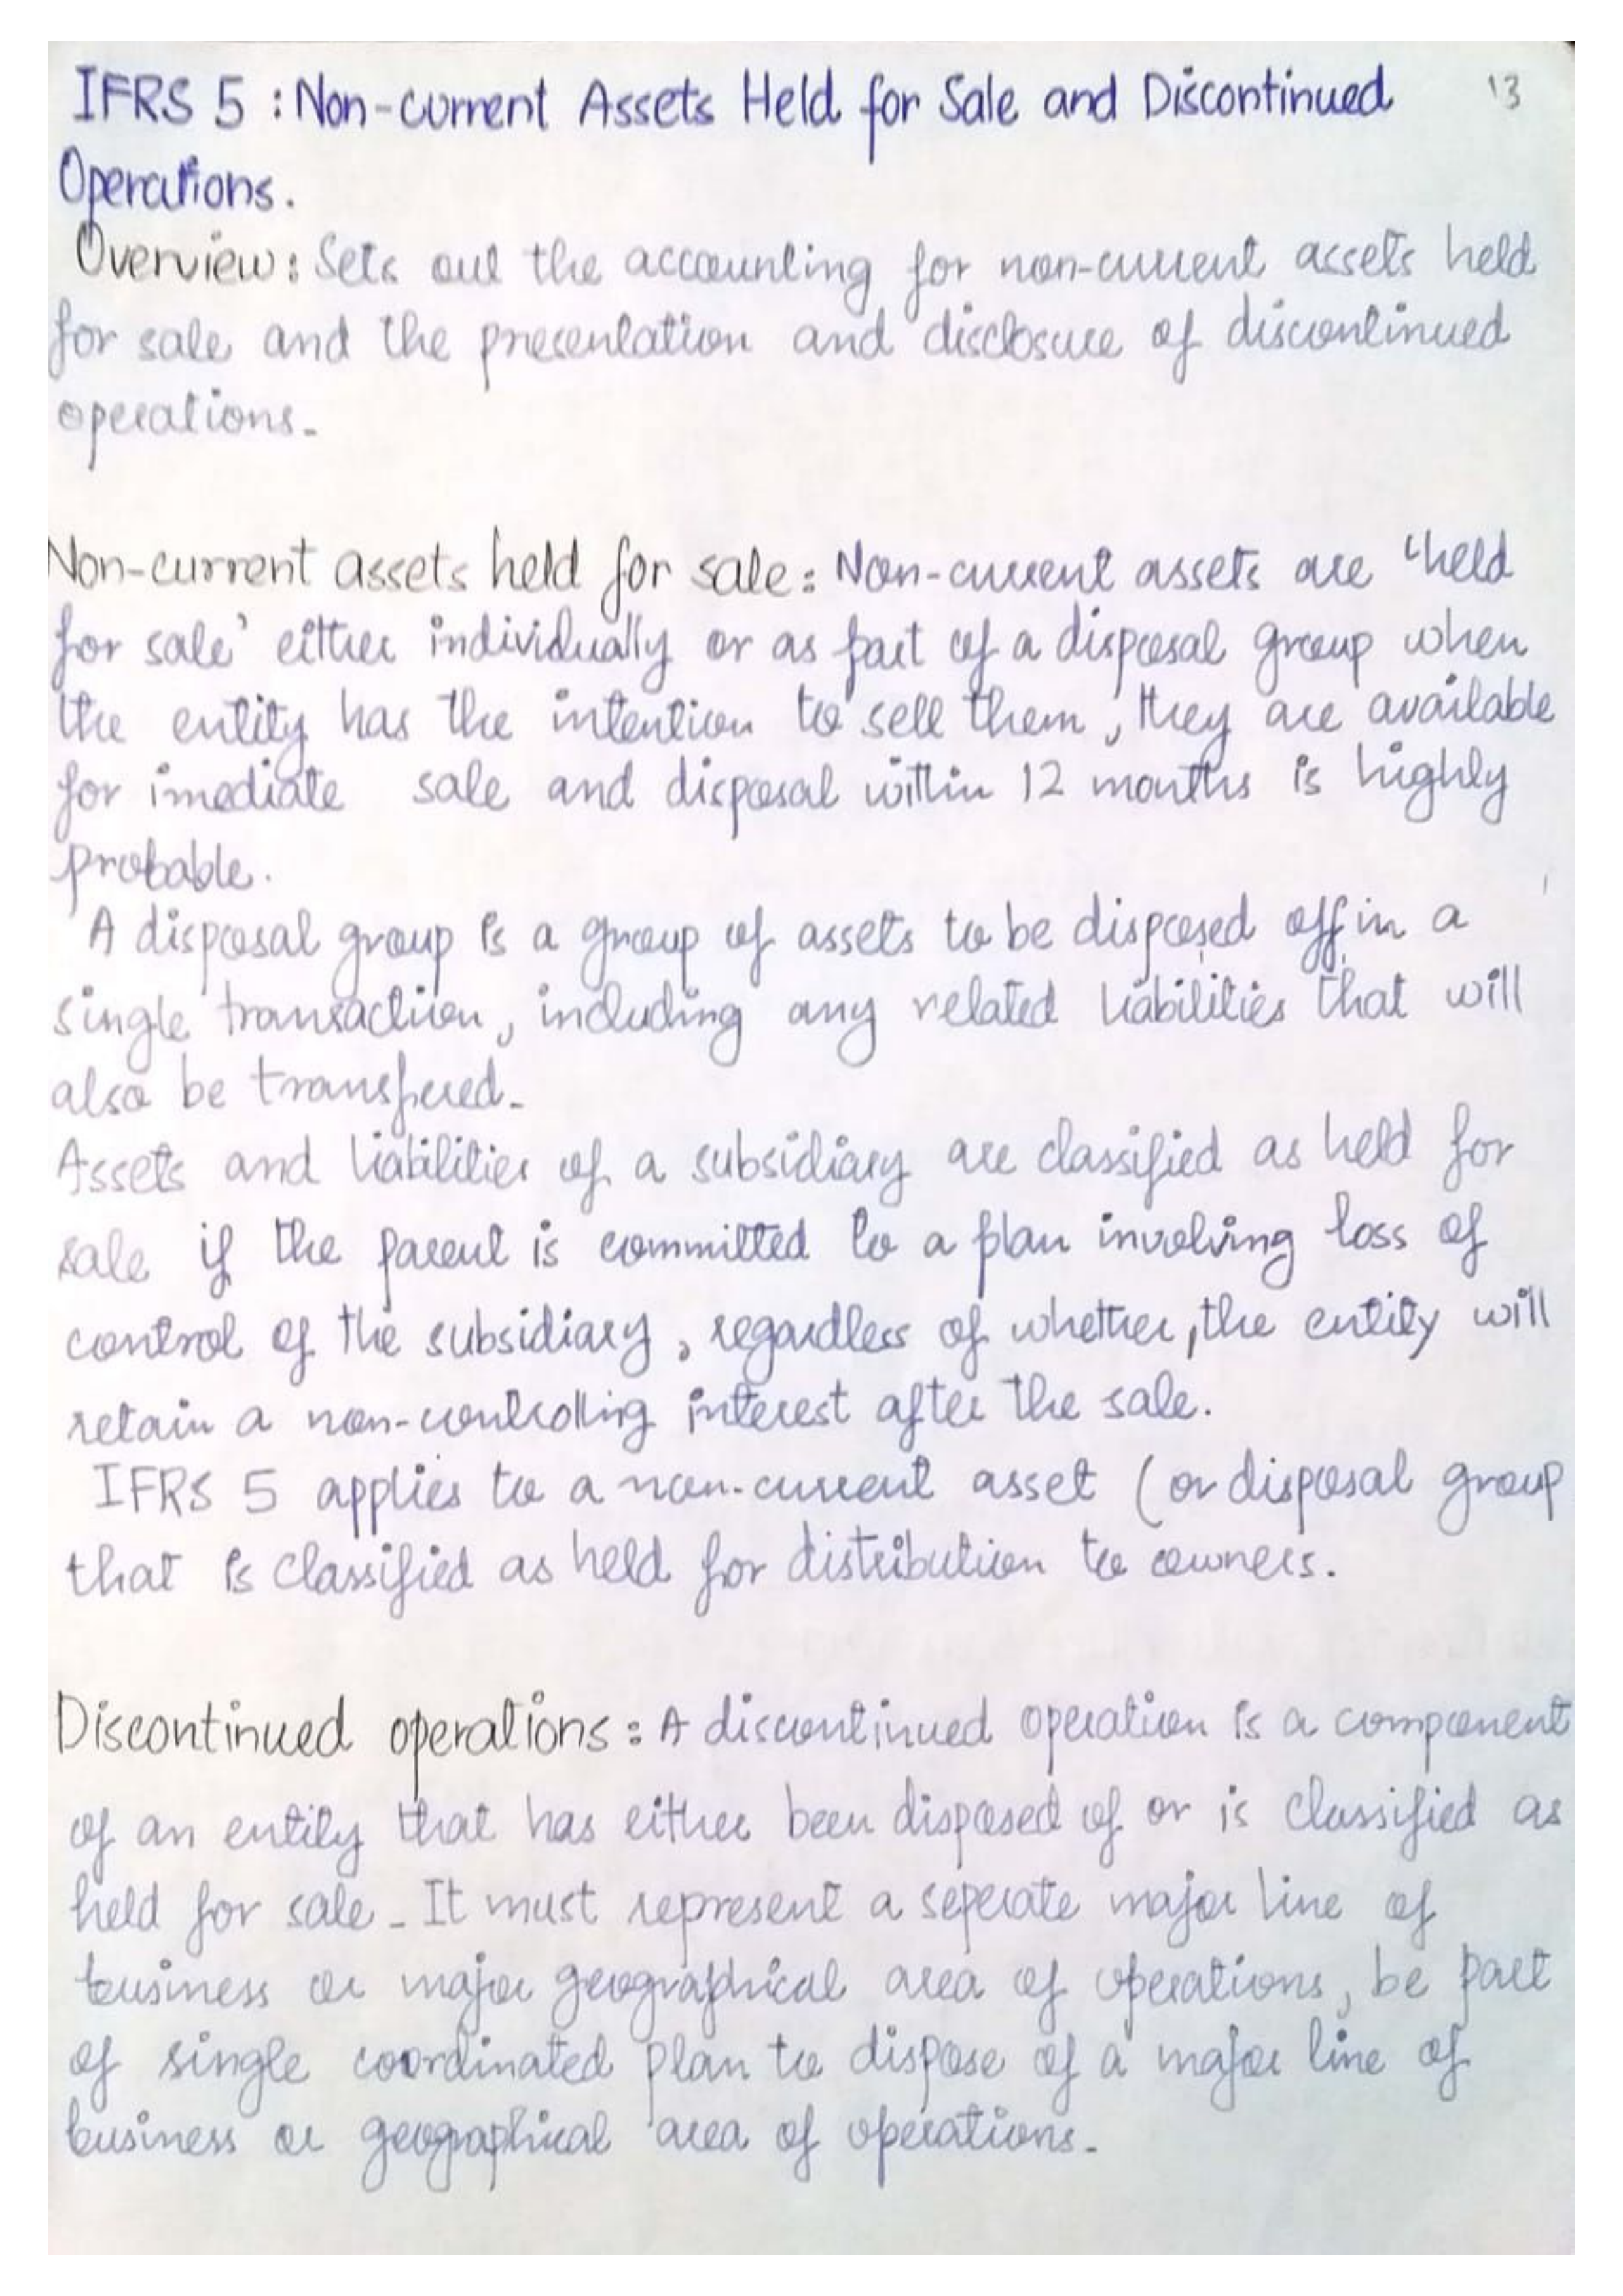 IFRS 5 : Non-current Assets Held for Sale and Discontinued 13
Operations.
Overview: Sets out the accounting for non-current assets held
for sale and the presentation and disclosure of discontinued
operations.
Non-current assets held for sale: Non-current assets are 'held
for sale' either individually or as part of a disposal group when
the entity has the intention to sell them, they are available
for imediate sale and disposal within 12 months is highly
probable.
A disposal group is a group of assets to be disposed off in a
single transaction, including any related liabilities that will
also be transfered.
Assets and liabilities of a subsidiary are classified as held for
sale if the parent is committed to a plan involving loss of
control of the subsidiary, regardless of whether, the entity will
retain a non-controlling interest after the sale.
IFRS 5 applies to a non-current asset (or disposal group
that is classified as held for distribution to owners.
Discontinued operations: A discontinued operation is a component
of an entity that has either been disposed of or is classified as
held for sale. It must represent a seperate major line of
business or major geographical area of operations, be part
of single coordinated plan to dispose of a major line of
business or geographical area of operations.